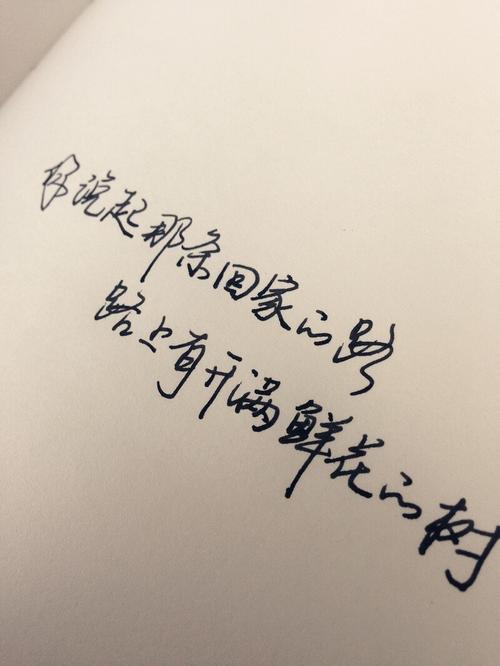 你说起那条回家的路
路上有开满鲜花的树